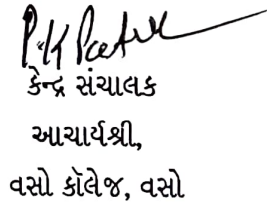 P.K Patel
કેન્દ્ર સંચાલક
આચાર્યશ્રી,
વસો કૉલેજ, વસો